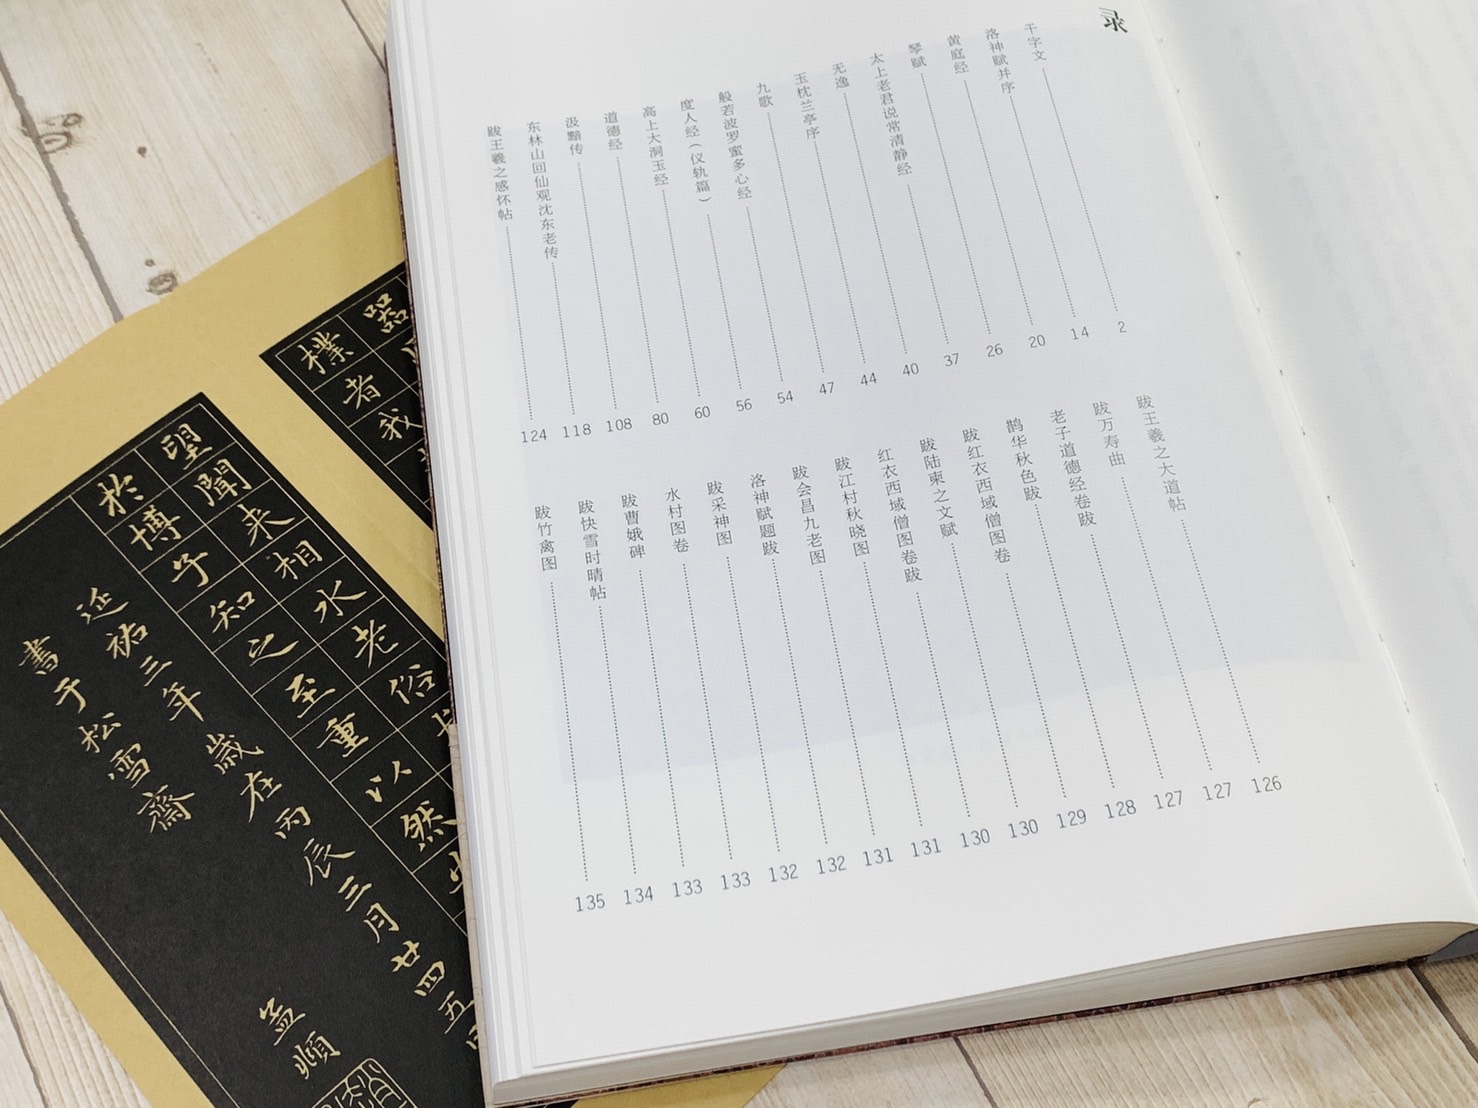 录
千字文 2
洛神赋并序 14
黄庭经 20
琴赋 26
太上老君说常清静经 37
无逸 40
玉枕兰亭序 44
九歌 47
般若波罗蜜多心经 54
度人经（仪轨篇） 56
高上大洞玉经 60
道德经 80
汲黯传 108
东林山回仙观沈东老传 118
跋王羲之感怀帖 124
跋王羲之大道帖 126
跋万寿曲 127
老子道德经卷跋 127
鹊华秋色跋 128
跋红衣西域僧图卷 129
跋陆柬之文赋 130
红衣西域僧图卷跋 130
跋江村秋晓图 131
跋会昌九老图 131
洛神赋题跋 132
跋采神图 132
水村图卷 133
跋曹娥碑 133
跋快雪时晴帖 134
跋竹禽图 135
器
樸者我
水老俗
望聞来相
之至重以然
於博予知
延祐三年歲在丙辰三月廿四五
書于松雪齋
孟頫